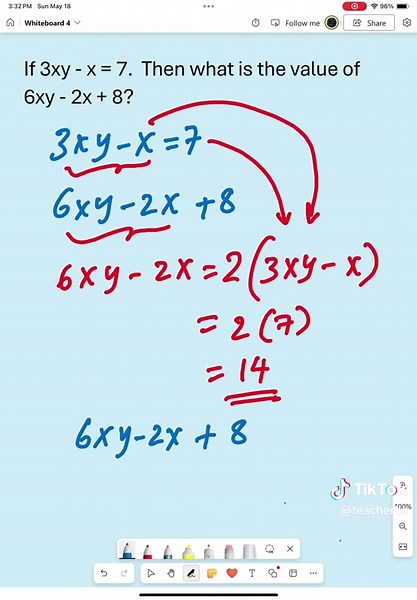 3:32 PM Sun May 18
96%
Whiteboard 4
Follow me
Share
If 3xy - x = 7. Then what is the value of
6xy - 2x + 8?
3xy-x=7
6xy-2x +8
6xy-2x=2(3xy-x)
=2(7)
=14
6xy-2x+8
TikTo
@teacher
100%
T